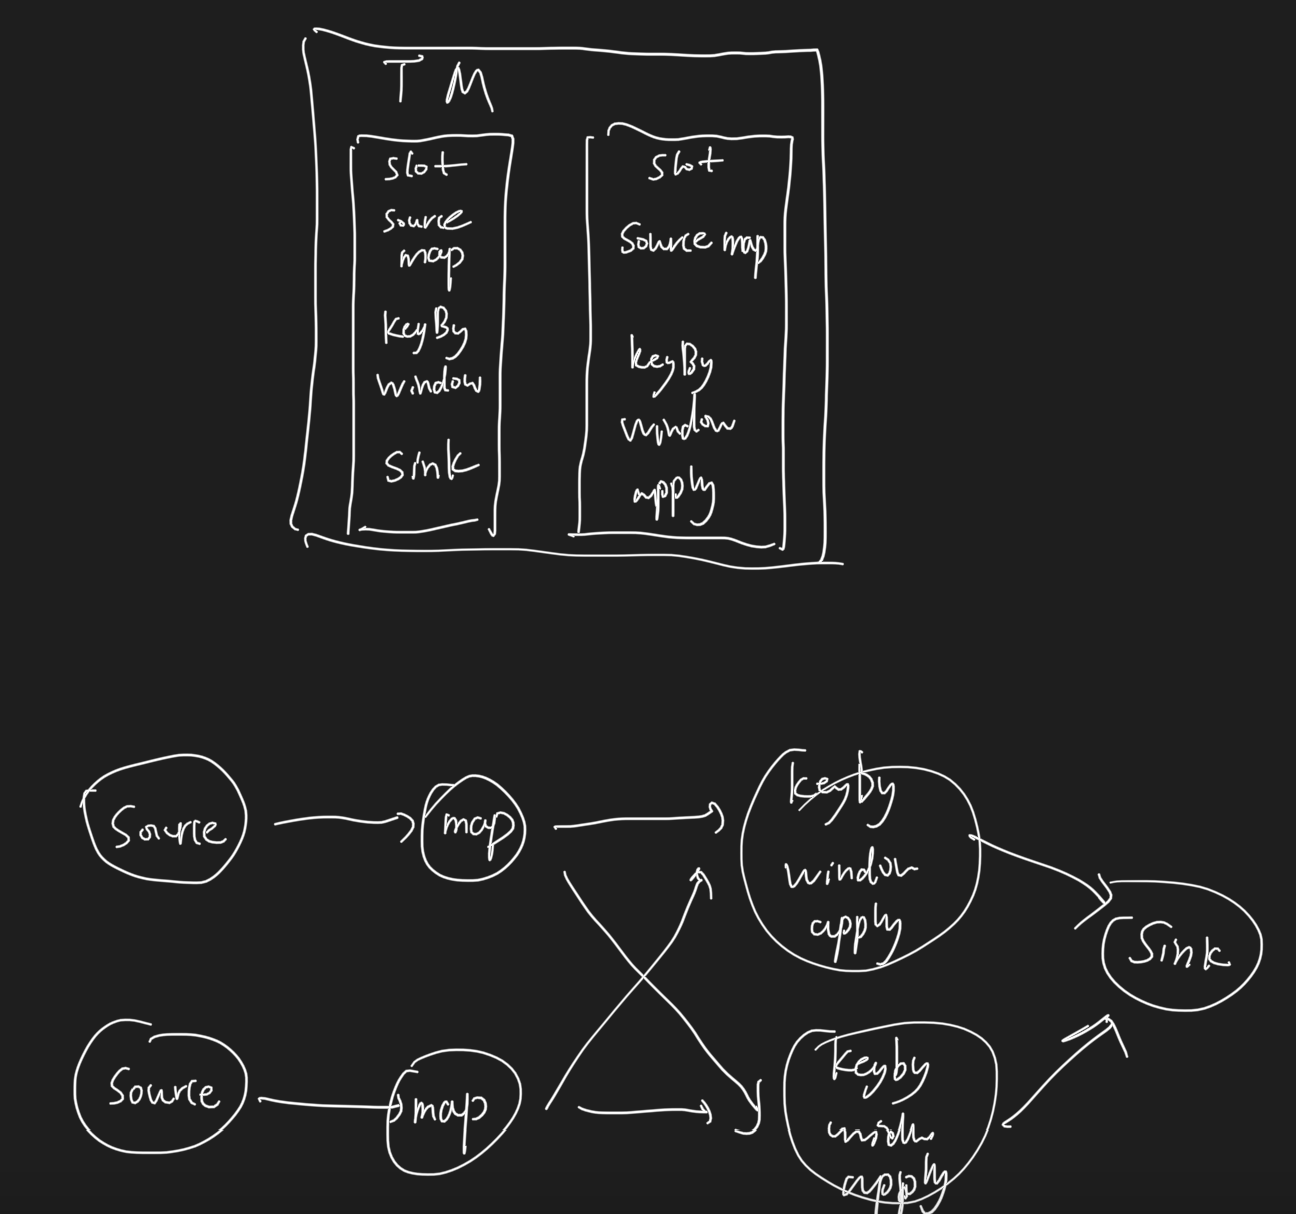 TM
slot
source
map
keyBy
window
sink
slot
Source map
keyBy
window
apply
Source
map
keyby
window
apply
Sink
Source
map
keyby
apply